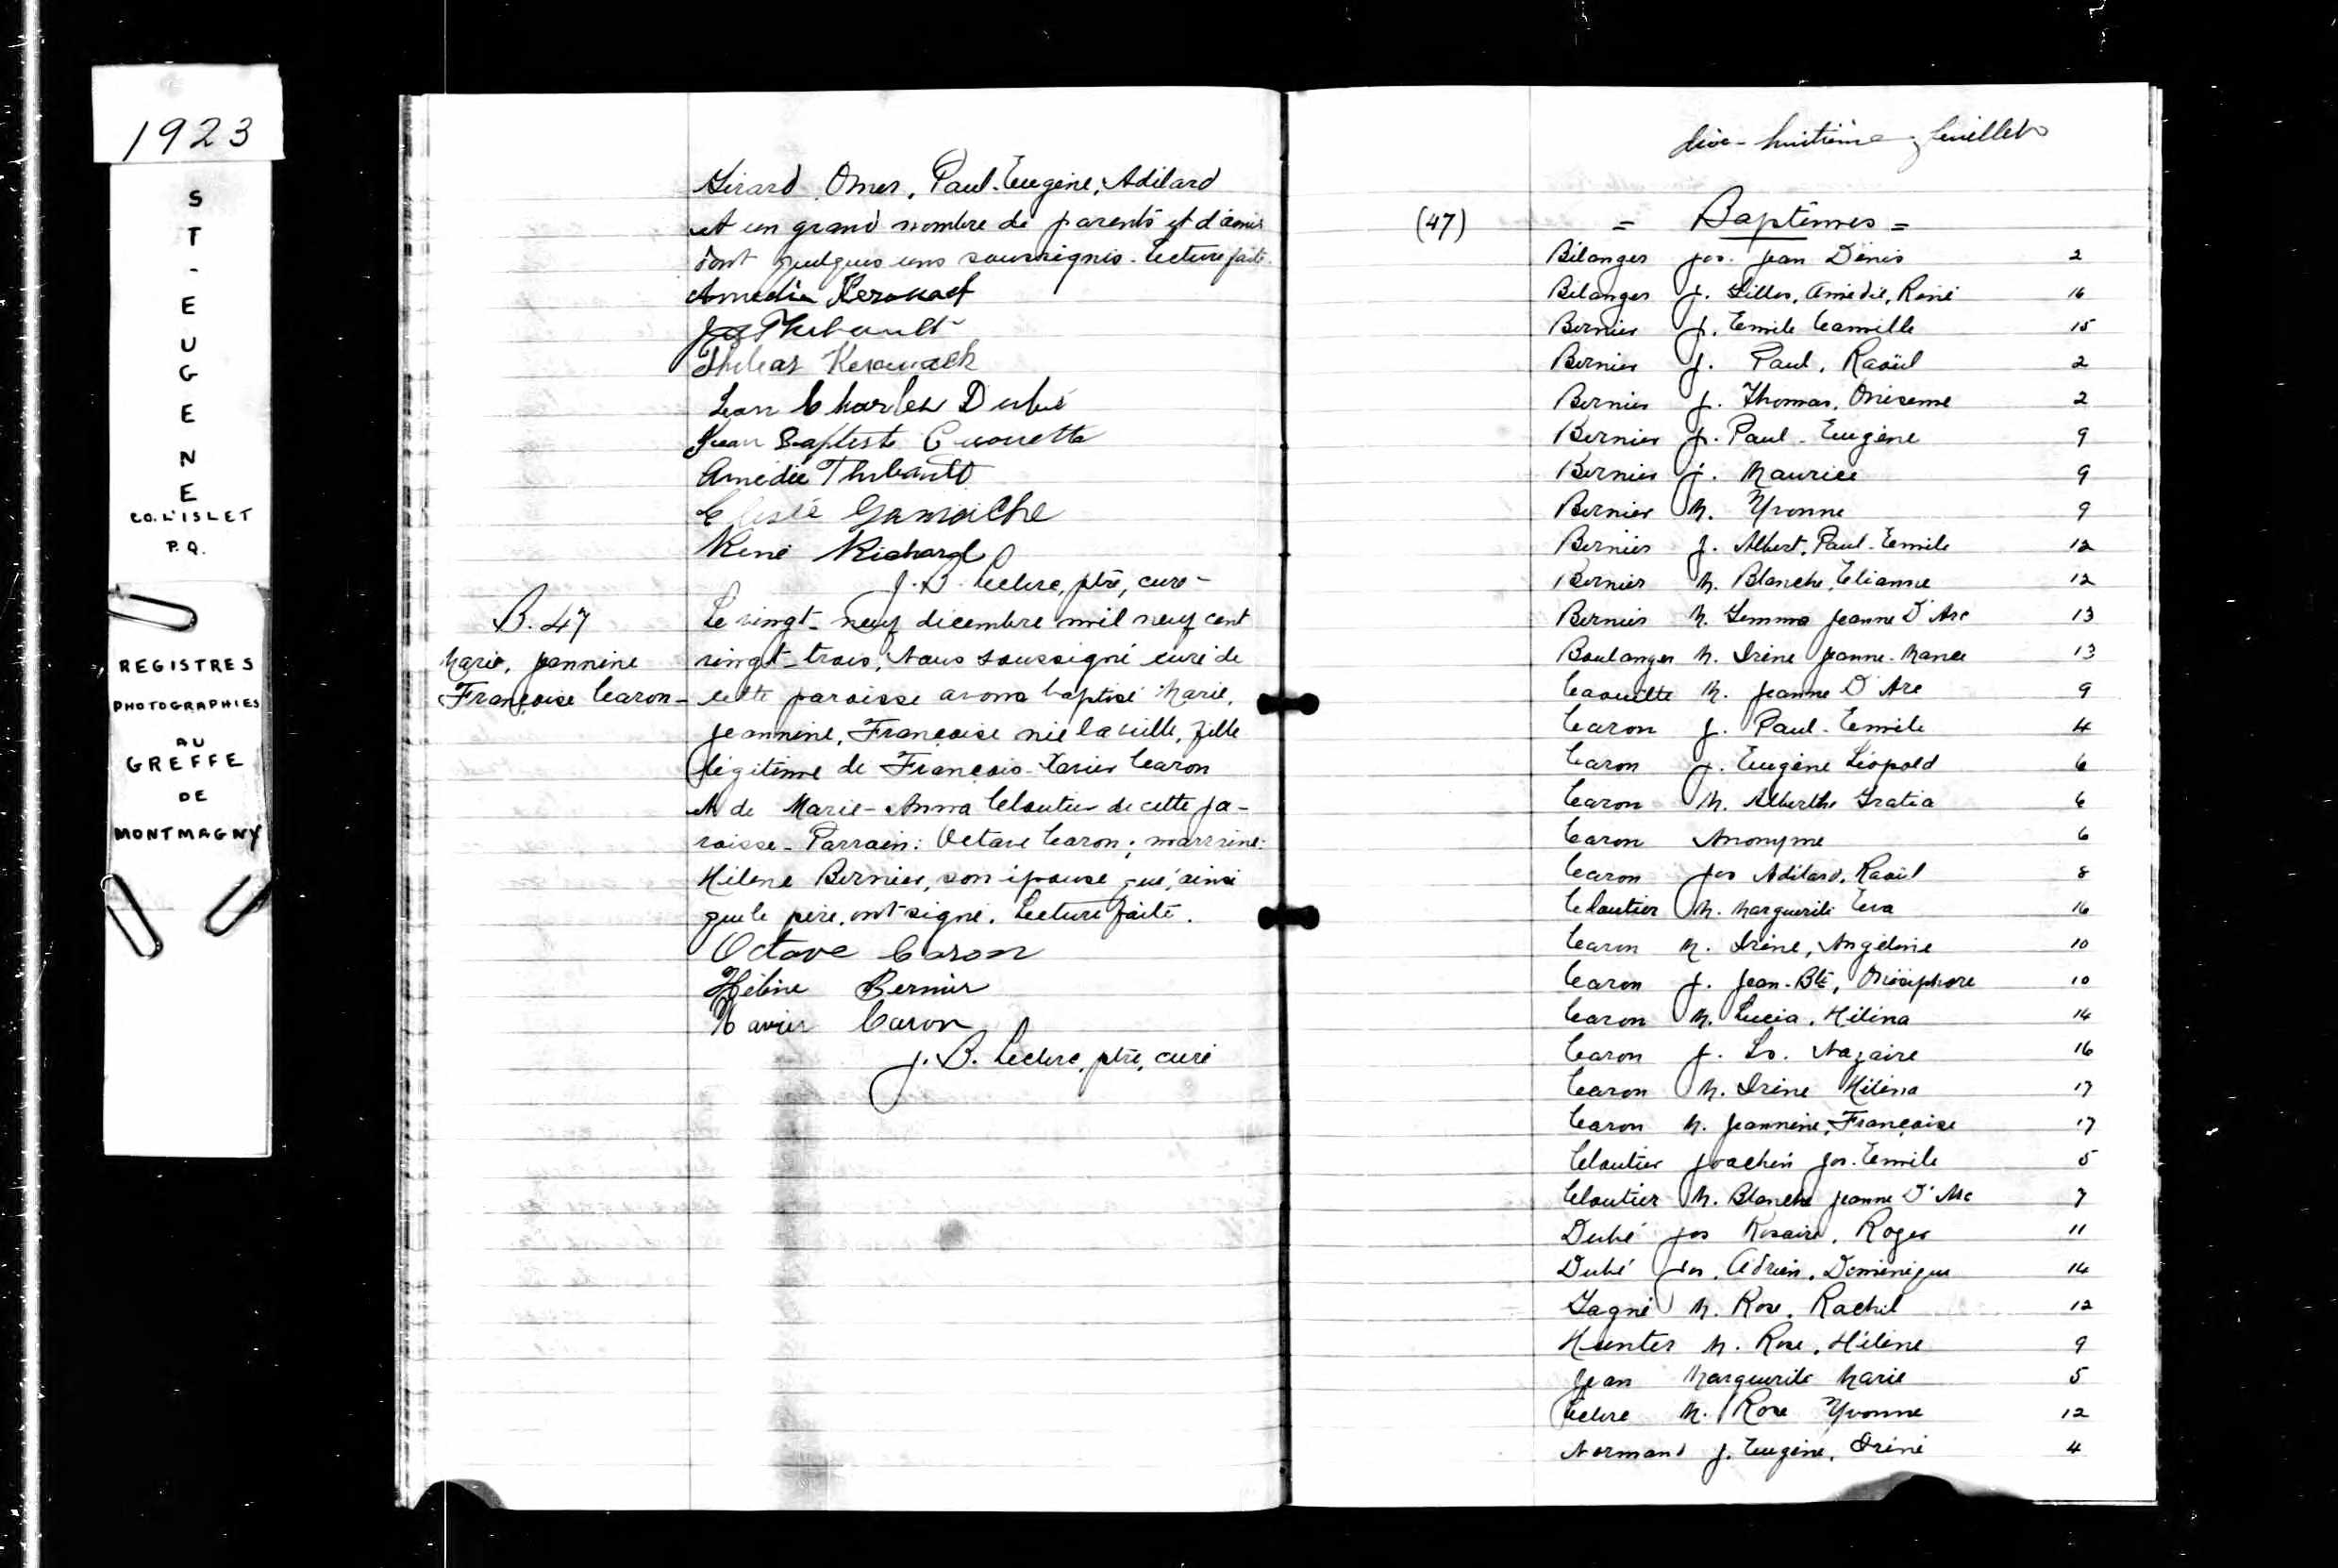 1923
ST-EUGENE
CO. L'ISLET
P.Q.
REGISTRES
PHOTOGRAPHIES
AU
GREFFE
DE
MONTMAGNY
Girard, Omer, Paul-Eugène, Adélard
et un grand nombre de parents et d'amis
dont quelques uns soussignés. Lecture faite.
Amédée Kerouack
Jos Thibault
Kerouack
Charles Dubé
Jean Baptiste Caouette
Amédée Thibault
Gamache
René Richard
J. B. Leclerc, ptre, curé-
B. 47
Marie, Jeannine
Françoise Caron-
Le vingt-neuf décembre mil neuf cent
vingt-trois, Nous soussigné curé de
cette paroisse avons baptisé Marie,
Jeannine, Françoise née la veille, fille
légitime de François-Xavier Caron
et de Marie-Anna Cloutier de cette pa-
roisse- Parrain: Octave Caron; marraine:
Hélène Bernier, son épouse qui, ainsi
que le père, ont signé. Lecture faite.
Octave Caron
Hélène Bernier
Xavier Caron
J. B. Leclerc, ptre, curé
dix-huitième feuillet
(47) = Baptêmes =
Bélanger Jos. Jean Denis 2
Bélanger J. Gilles, Amédée, René 16
Bernier J. Emile Camille 15
Bernier J. Paul, Raoül 2
Bernier J. Thomas, Onésime 2
Bernier J. Paul-Eugène 9
Bernier J. Maurice 9
Bernier M. Yvonne 9
Bernier J. Albert, Paul-Emile 12
Bernier M. Blanche, Elianne 12
Bernier M. Gemma Jeanne D'Arc 13
Boulanger M. Irène Jeanne-Mance 13
Caouette M. Jeanne D'Arc 9
Caron J. Paul-Emile 4
Caron J. Eugène Léopold 6
Caron M. Alberthe Gratia 6
Caron Anonyme 6
Caron Jos Adélard, Raoül 8
Cloutier M. Marguerite Eva 16
Caron M. Irène, Angéline 10
Caron J. Jean-Bte, Onésiphore 10
Caron M. Lucia, Hélèna 14
Caron J. Ls. Nazaire 16
Caron M. Irène Hélèna 17
Caron M. Jeannine, Françoise 17
Cloutier Joachin Jos. Emile 5
Cloutier M. Blanche Jeanne D'Arc 7
Dubé Jos Rosaire, Roger 11
Dubé Jos. Adrien, Dominique 14
Gagné M. Rose, Rachel 12
Hunter M. Rose, Hélène 9
Jean Marguerite Marie 5
Leclerc M. Rose Yvonne 12
Normand J. Eugène, Iréné 4